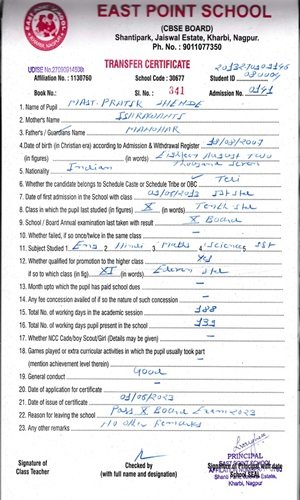 EAST POINT SCHOOL
(CBSE BOARD)
Shantipark, Jaiswal Estate, Kharbi, Nagpur.
Ph. No. : 9011077350
TRANSFER CERTIFICATE
UDISE No.
Affiliation No. : 1130760 School Code : 30677 Student ID
Book No.: Sl. No. : 341 Admission No. 0141
1. Name of Pupil MAST. PRATIK
2. Mother's Name
3. Father's / Guardians Name MANOHAR
4.Date of birth (in Christian era) according to Admission & Withdrawal Register 18/08/2007
(in figures) (in words) Eighteen August Two
Thousand Seven
5. Nationality Indian
6. Whether the candidate belongs to Schedule Caste or Schedule Tribe or OBC Teli
7. Date of first admission in the School with class
8. Class in which the pupil last studied (in figures) X (in words) Tenth std
9. School / Board Annual examination last taken with result X Board
10. Whether failed, if so once/twice in the same class
11. Subject Studied 1. Eng 2. Hindi 3. Maths 4. Science 5. SST
12. Whether qualified for promotion to the higher class Yes
if so to which class (in fig) XI (in words) Eleven std
13. Month upto which the pupil has paid school dues
14. Any fee concession availed of if so the nature of such concession
15. Total No. of working days in the academic session 188
16. Total No. of working days pupil present in the school 133
17. Whether NCC Cade/boy Scout/Girl (Details may be given)
18. Games played or extra curricular activities in which the pupil usually took part
(mention achievement level therein)
19. General conduct Good
20. Date of application for certificate
21. Date of issue of certificate
22. Reason for leaving the school Pass X Board Exam 2023
23. Any other remarks No Other Remarks
Signature of
Class Teacher
Checked by
(with full name and designation)
Signature of Principal with date
School SEAL
PRINCIPAL
EAST POINT SCHOOL
Kharbi, Nagpur.